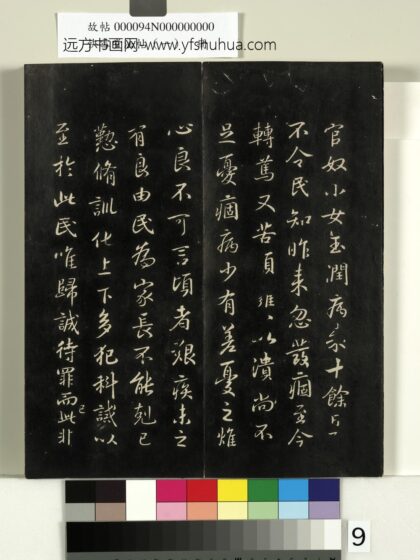 故帖 000094N000000000
远方书画网-www.yfshuhua.com
官奴小女玉潤病來十餘日
不令民知昨來忽發痼至今
轉篤又苦頭癰頭癰以潰尚不
足憂痼病少有差憂之燋
心良不可言頃者艱疾未之
有良由民為家長不能剋己
懃脩訓化上下多犯科誡以
至於此民唯歸誠待罪而已此非
9